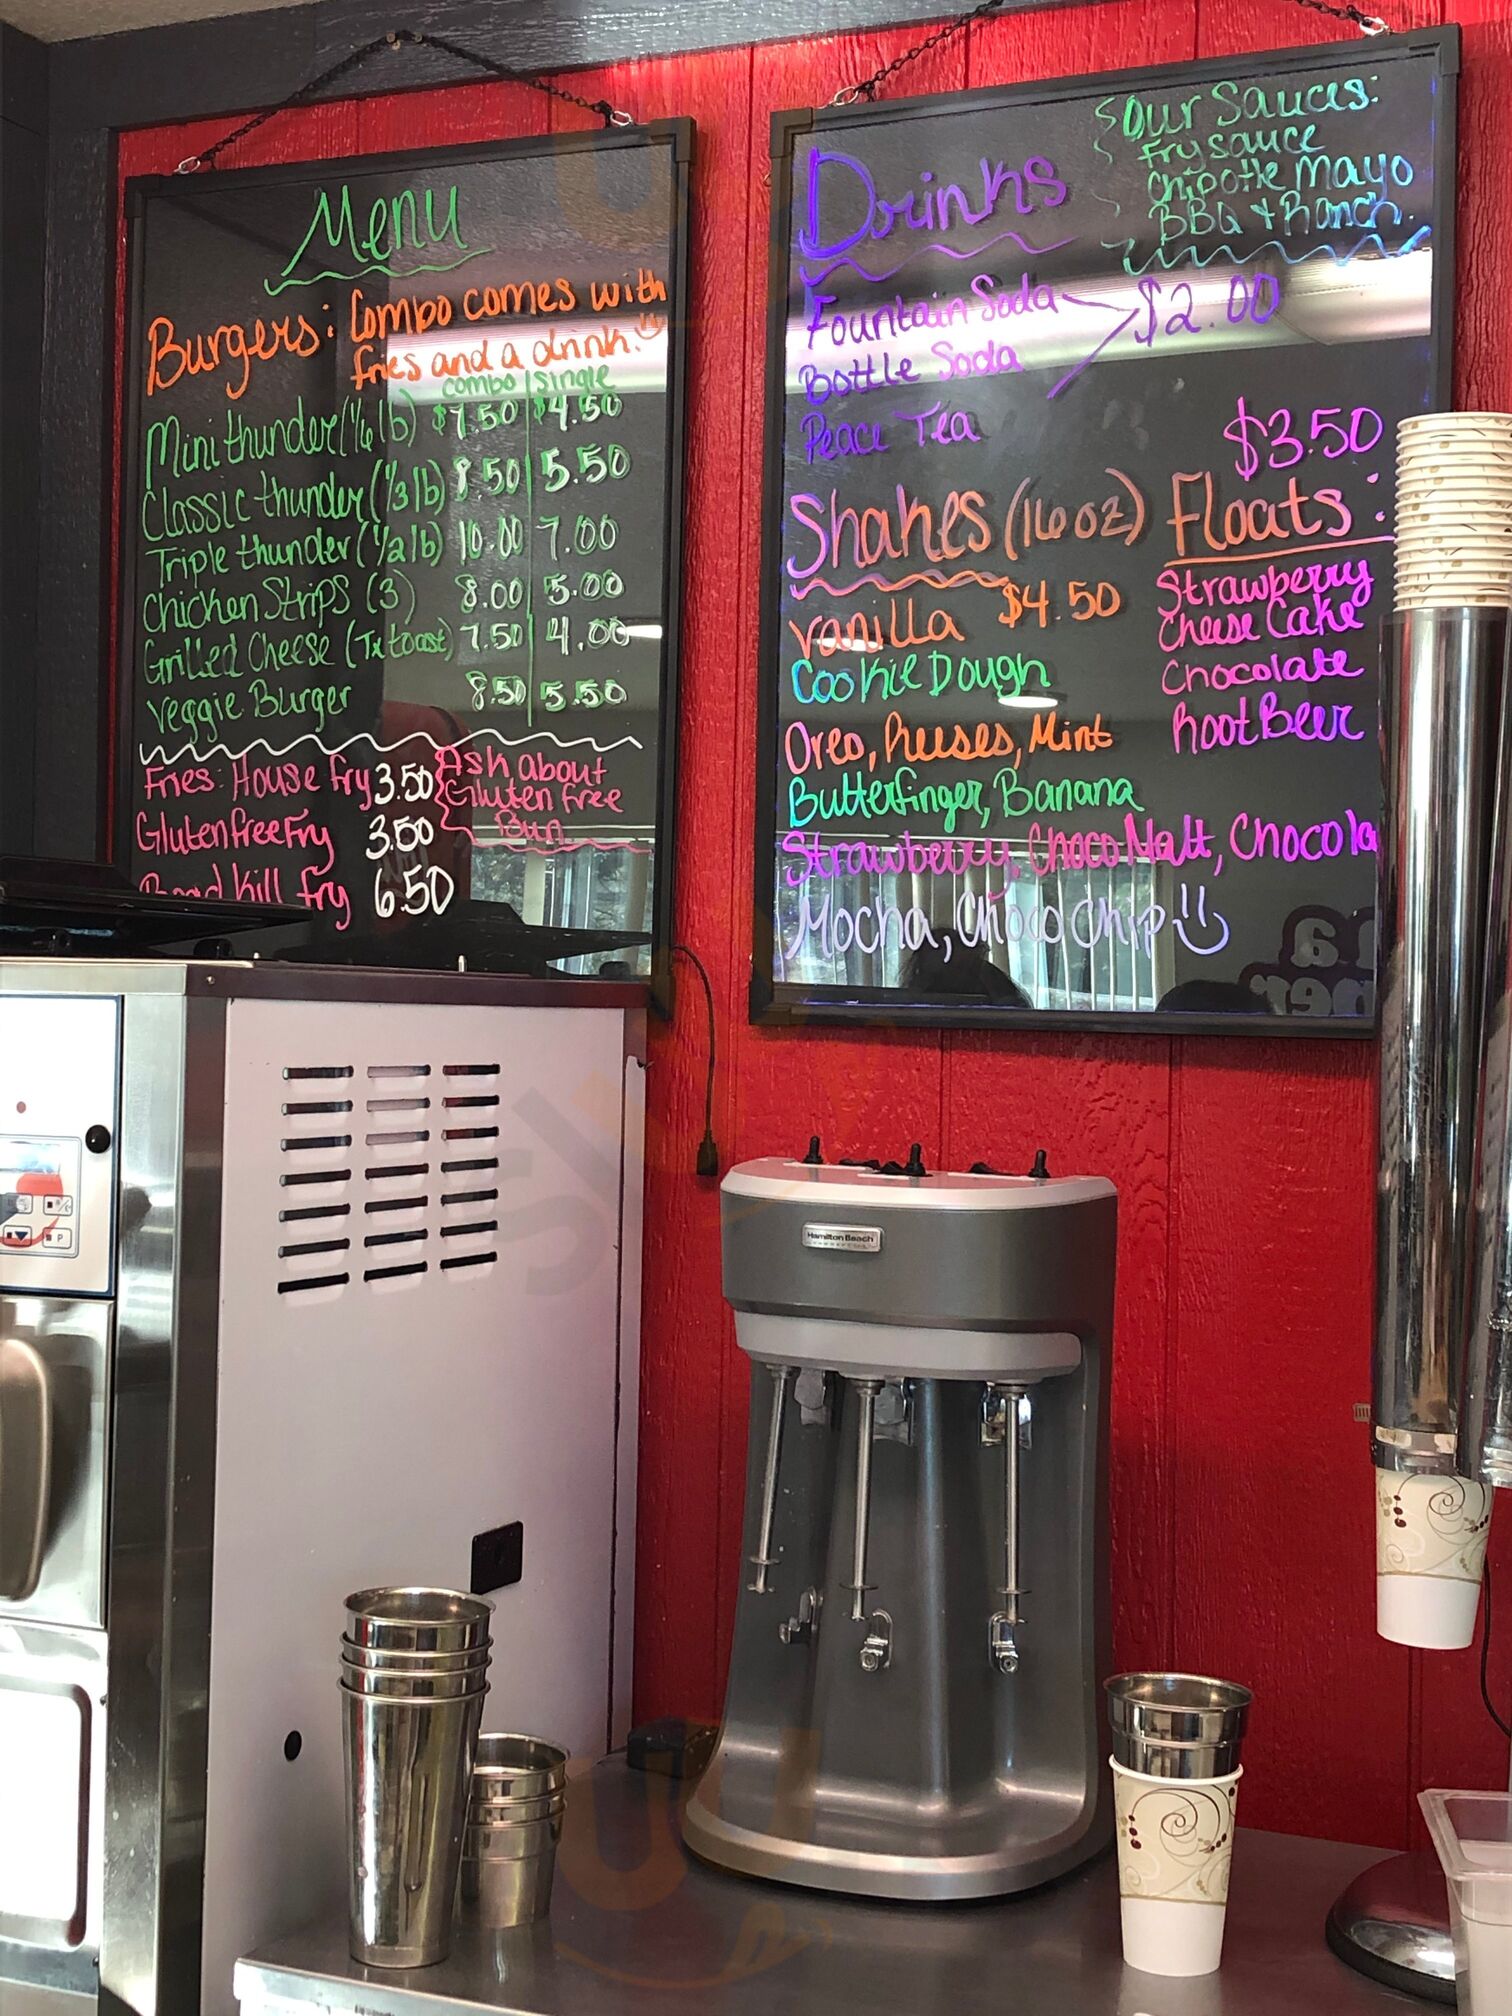 Menu
Burgers: Combo comes with
fries and a drink.
combo single
Mini thunder (1/6 lb) $7.50 $4.50
Classic thunder (1/3 lb) 8.50 5.50
Triple thunder (1/2 lb) 10.00 7.00
Chicken Strips (3) 8.00 5.00
Grilled Cheese (Tx toast) 7.50 4.00
Veggie Burger 8.50 5.50
Fries: House Fry 3.50
Gluten free Fry 3.50
Road Kill fry 6.50
Ask about
Gluten free
Bun
Our Sauces:
Fry sauce
Chipotle Mayo
BBQ + Ranch.
Drinks
Fountain Soda $2.00
Bottle Soda
Peace Tea
Shakes (16 oz)
Vanilla $4.50
Cookie Dough
Oreo, Reeses, Mint
Butterfinger, Banana
Strawberry, Choco Malt, Chocola
Mocha, Choco Chip
$3.50
Floats:
Strawberry
Cheese Cake
Chocolate
Root Beer
Hamilton Beach
P